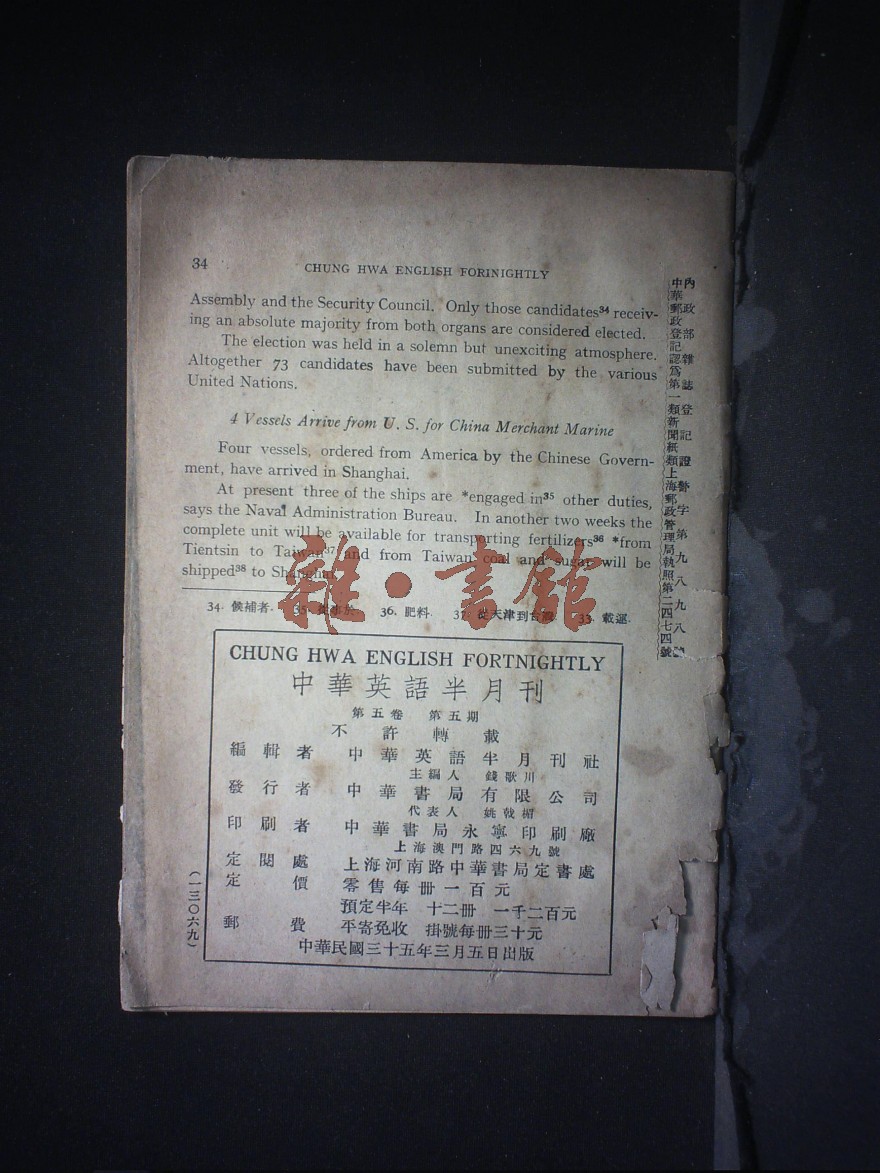 34
CHUNG HWA ENGLISH FORINIGHTLY
Assembly and the Security Council. Only those candidates³⁴ receiv-
ing an absolute majority from both organs are considered elected.
The election was held in a solemn but unexciting atmosphere.
Altogether 73 candidates have been submitted by the various
United Nations.
4 Vessels Arrive from U. S. for China Merchant Marine
Four vessels, ordered from America by the Chinese Govern-
ment, have arrived in Shanghai.
At present three of the ships are *engaged in³⁵ other duties,
says the Naval Administration Bureau. In another two weeks the
complete unit will be available for transporting fertilizers³⁶ *from
Tientsin to Taiwan³⁷ and from Taiwan coal and sugar will be
shipped³⁸ to Shanghai.
34. 候補者. 35. 從事於. 36. 肥料. 37. 從天津到台灣. 33. 載運.
CHUNG HWA ENGLISH FORTNIGHTLY
中華英語半月刊
第五卷 第五期
不許轉載
編輯者 中華英語半月刊社
主編人 錢歌川
發行者 中華書局有限公司
代表人 姚戟楣
印刷者 中華書局永寧印刷廠
上海澳門路四六九號
定閱處 上海河南路中華書局定書處
定價 零售每冊一百元
預定半年 十二冊 一千二百元
郵費 平寄免收 掛號每冊三十元
中華民國三十五年三月五日出版
(一三〇六九)
內政部雜誌登記證警字第九八九八號
中華郵政登記認爲第一類新聞紙類上海郵政管理局執照第二四七四號
雜·書館